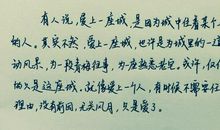 有人说，爱上一座城，是因为城中住着某个
的人。其实不然，爱上一座城，也许是为城里的一道
动风景，为一段青梅往事，为一座熟悉老宅。或许，仅
的只是这座城。就像爱上一个人，有时候不需要任
理由，没有前因，无关风月，只是爱了。